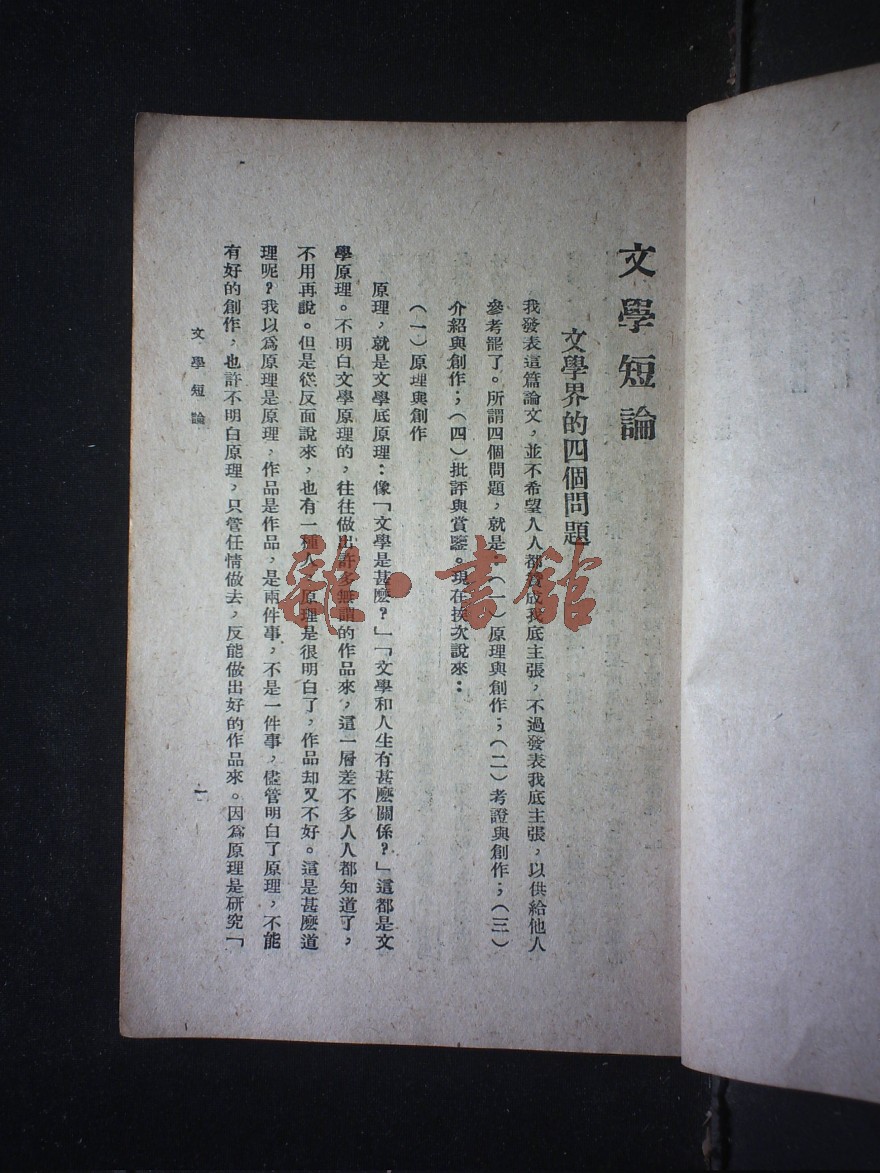 文學短論
文學界的四個問題
我發表這篇論文，並不希望人人都贊成我底主張，不過發表我底主張，以供給他人
參考罷了。所謂四個問題，就是：（一）原理與創作；（二）考證與創作；（三）
介紹與創作；（四）批評與賞鑒。現在挨次說來：
（一）原理與創作
原理，就是文學底原理：像「文學是甚麼？」「文學和人生有甚麼關係？」這都是文
學原理。不明白文學原理的，往往做出許多無謂的作品來，這一層差不多人人都知道了，
不用再說。但是從反面說來，也有一種人，原理是很明白了，作品却又不好。這是甚麼道
理呢？我以爲原理是原理，作品是作品，是兩件事，不是一件事，儘管明白了原理，不能
有好的創作，也許不明白原理，只管任情做去，反能做出好的作品來。因爲原理是研究「
文學短論
一
雜·書館